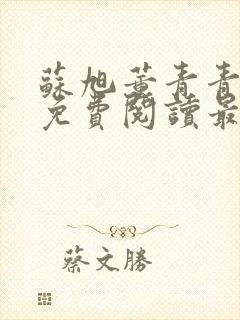 蘇旭薰青青
免費閱讀最
蔡文勝